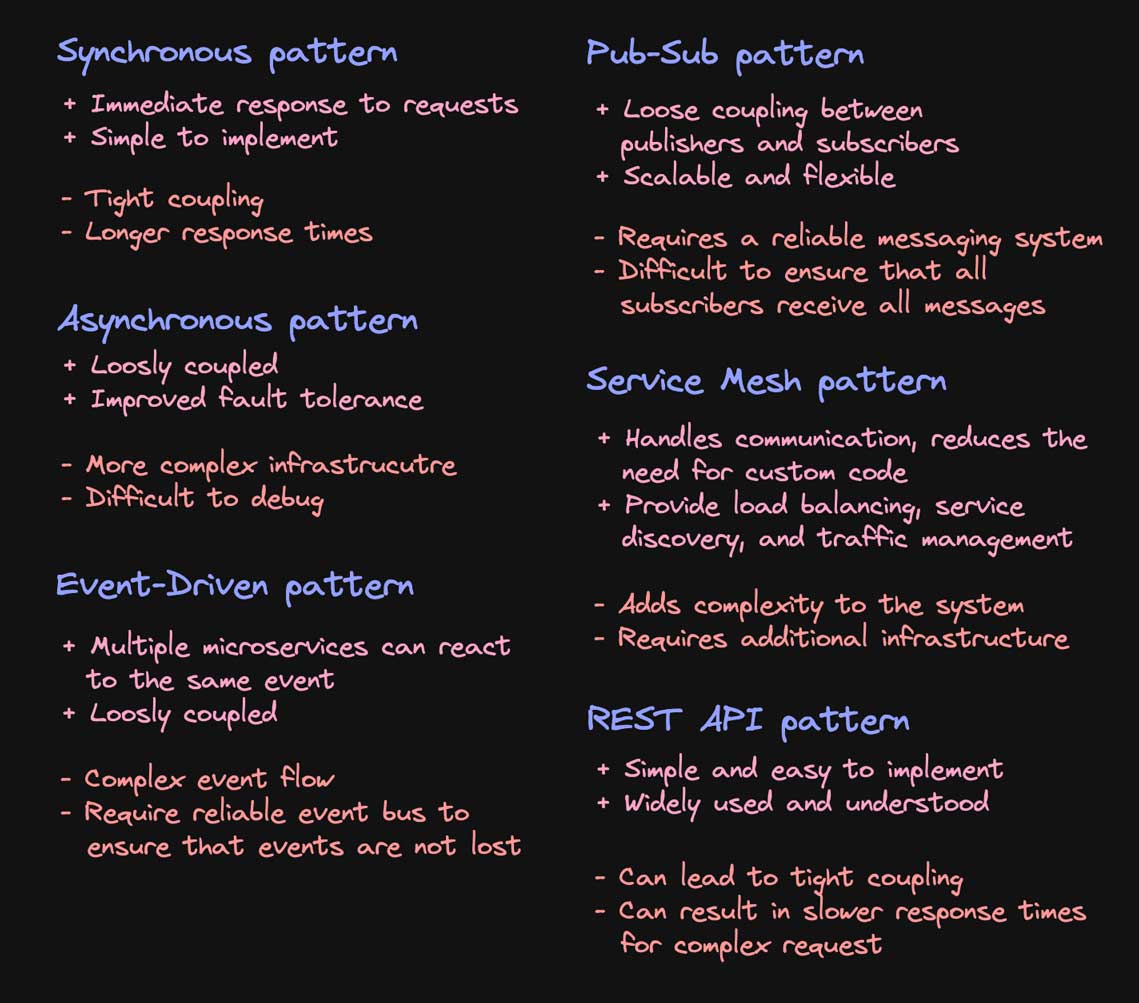 Synchronous pattern
+ Immediate response to requests
+ Simple to implement
- Tight coupling
- Longer response times
Asynchronous pattern
+ Loosly coupled
+ Improved fault tolerance
- More complex infrastrucutre
- Difficult to debug
Event-Driven pattern
+ Multiple microservices can react
to the same event
+ Loosly coupled
- Complex event flow
- Require reliable event bus to
ensure that events are not lost
Pub-Sub pattern
+ Loose coupling between
publishers and subscribers
+ Scalable and flexible
- Requires a reliable messaging system
- Difficult to ensure that all
subscribers receive all messages
Service Mesh pattern
+ Handles communication, reduces the
need for custom code
+ Provide load balancing, service
discovery, and traffic management
- Adds complexity to the system
- Requires additional infrastructure
REST API pattern
+ Simple and easy to implement
+ Widely used and understood
- Can lead to tight coupling
- Can result in slower response times
for complex request